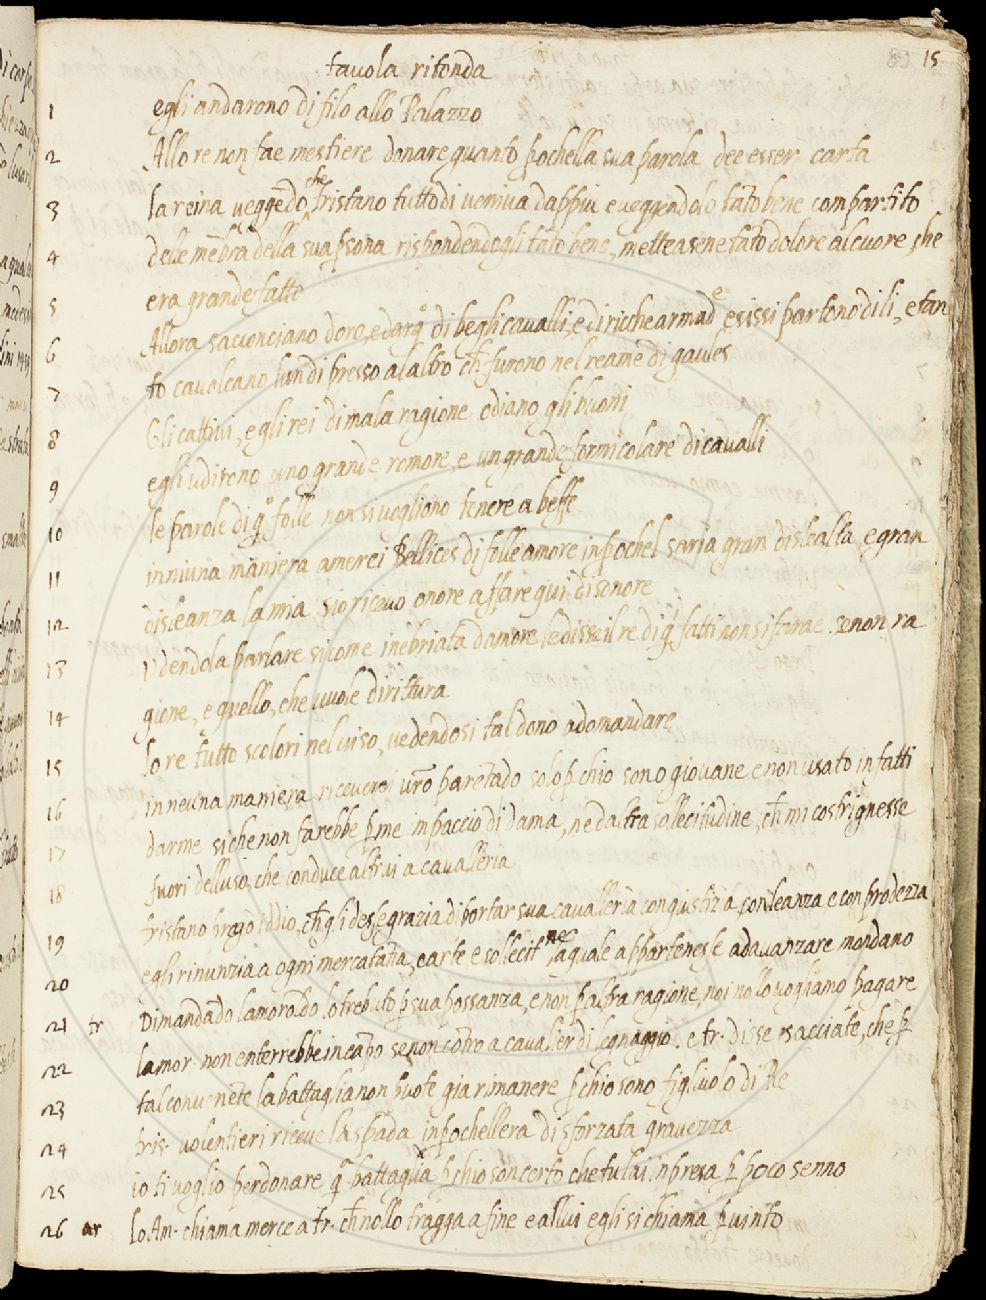 15
tavola ritonda
1 egli andarono di filo allo Palazzo
2 Allo re non fae mestiere donare quanto pochella sua parola dee esser carta
3 la reina veggẽdo che Tristano tutto di veniva dappiu e veggendolo tãto bene compartito
4 dele mẽbra della sua psona rispondendogli tãto bene, mettea sene tãto dolore al cuore, che
era grande fatto
5 Allora sacconciano doro, e darg̃to di begli cavalli, e di ricche armad e, e sissi partono di li, e tan
6 to cavalcano lun di presso alaltro ch̃ furono nel reame di gaules
7 Gli cattivi, e gli rei di mala ragione odiano gli buoni
8 egli udirono uno grande romore, e un grande formicolare di cavalli
9 le parole di q̃ folle non si vogliono tenere a beffe
10 inniuna maniera amerei Bellices di folle amore inpochel saria gran dislealta, e gran
11 disleanza la mia sio ricevo onore affare qui disenore
12 Udendola parlare sicome inebriata damore, le disse il re di q̃ fatti non si farae senon ra
13 gione, e quello, che vuole dirittura
14 lo re tutto scolori nel viso, vedendosi tal dono adomandare
15 in neuna maniera riceverei vr̃o parẽtado solo p chio sono giovane e non usato in fatti
16 darme siche non farebbe p me inpaccio di dama, ne daltra sollecitudine, ch̃ mi costrignesse
17 fuori delluso, che conduce altrui a cavalleria
18 tristano pregò Iddio, ch̃ gli desse grazia di portar sua cavalleria con giustizia, con leanza e con prodezza
19 egli rinunzia a ogni mercatãtia, e arte e sollecitne, laquale appartenesse ad avanzare mondano
20 Dimandãdo lamoraldo lo trebuto p sua possanza, e non p altra ragione, noi nollo vogliamo pagare
21 tr lamor. non enterrebbe in cãpo senon cõtro a cavalier di legnaggio. e tr. disse sacciate, che p
22 tal convenẽte la battaglia non puote gia rimanere p chio sono figliuolo di Re
23 tris. volentieri riceve la spada inpochellera di sforzata gravezza
24 io ti voglio perdonare q̃ battaglia p chio son certo che fu lai inpresa p poco senno
25
26 ar lo Am. chiama merce a tr. ch̃ nollo tragga a fine e allui egli si chiama p vinto